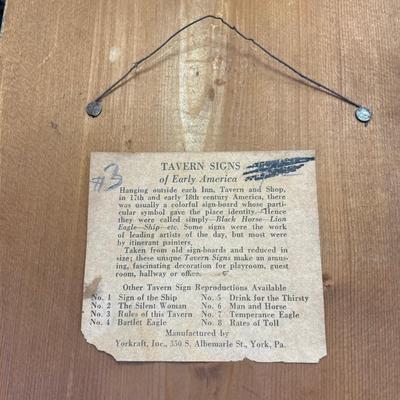 #3
TAVERN SIGNS
of Early America
Hanging outside each Inn, Tavern and Shop,
in 17th and early 18th century America, there
was usually a colorful sign-board whose parti-
cular symbol gave the place identity. Hence
they were called simply—Black Horse—Lion
Eagle—Ship—etc. Some signs were the work
of leading artists of the day, but most were
by itinerant painters.
Taken from old sign-boards and reduced in
size; these unique Tavern Signs make an amus-
ing, fascinating decoration for playroom, guest
room, hallway or office.
Other Tavern Sign Reproductions Available
No. 1 Sign of the Ship No. 5 Drink for the Thirsty
No. 2 The Silent Woman No. 6 Man and Horse
No. 3 Rules of this Tavern No. 7 Temperance Eagle
No. 4 Bartlet Eagle No. 8 Rates of Toll
Manufactured by
Yorkraft, Inc., 350 S. Albemarle St., York, Pa.